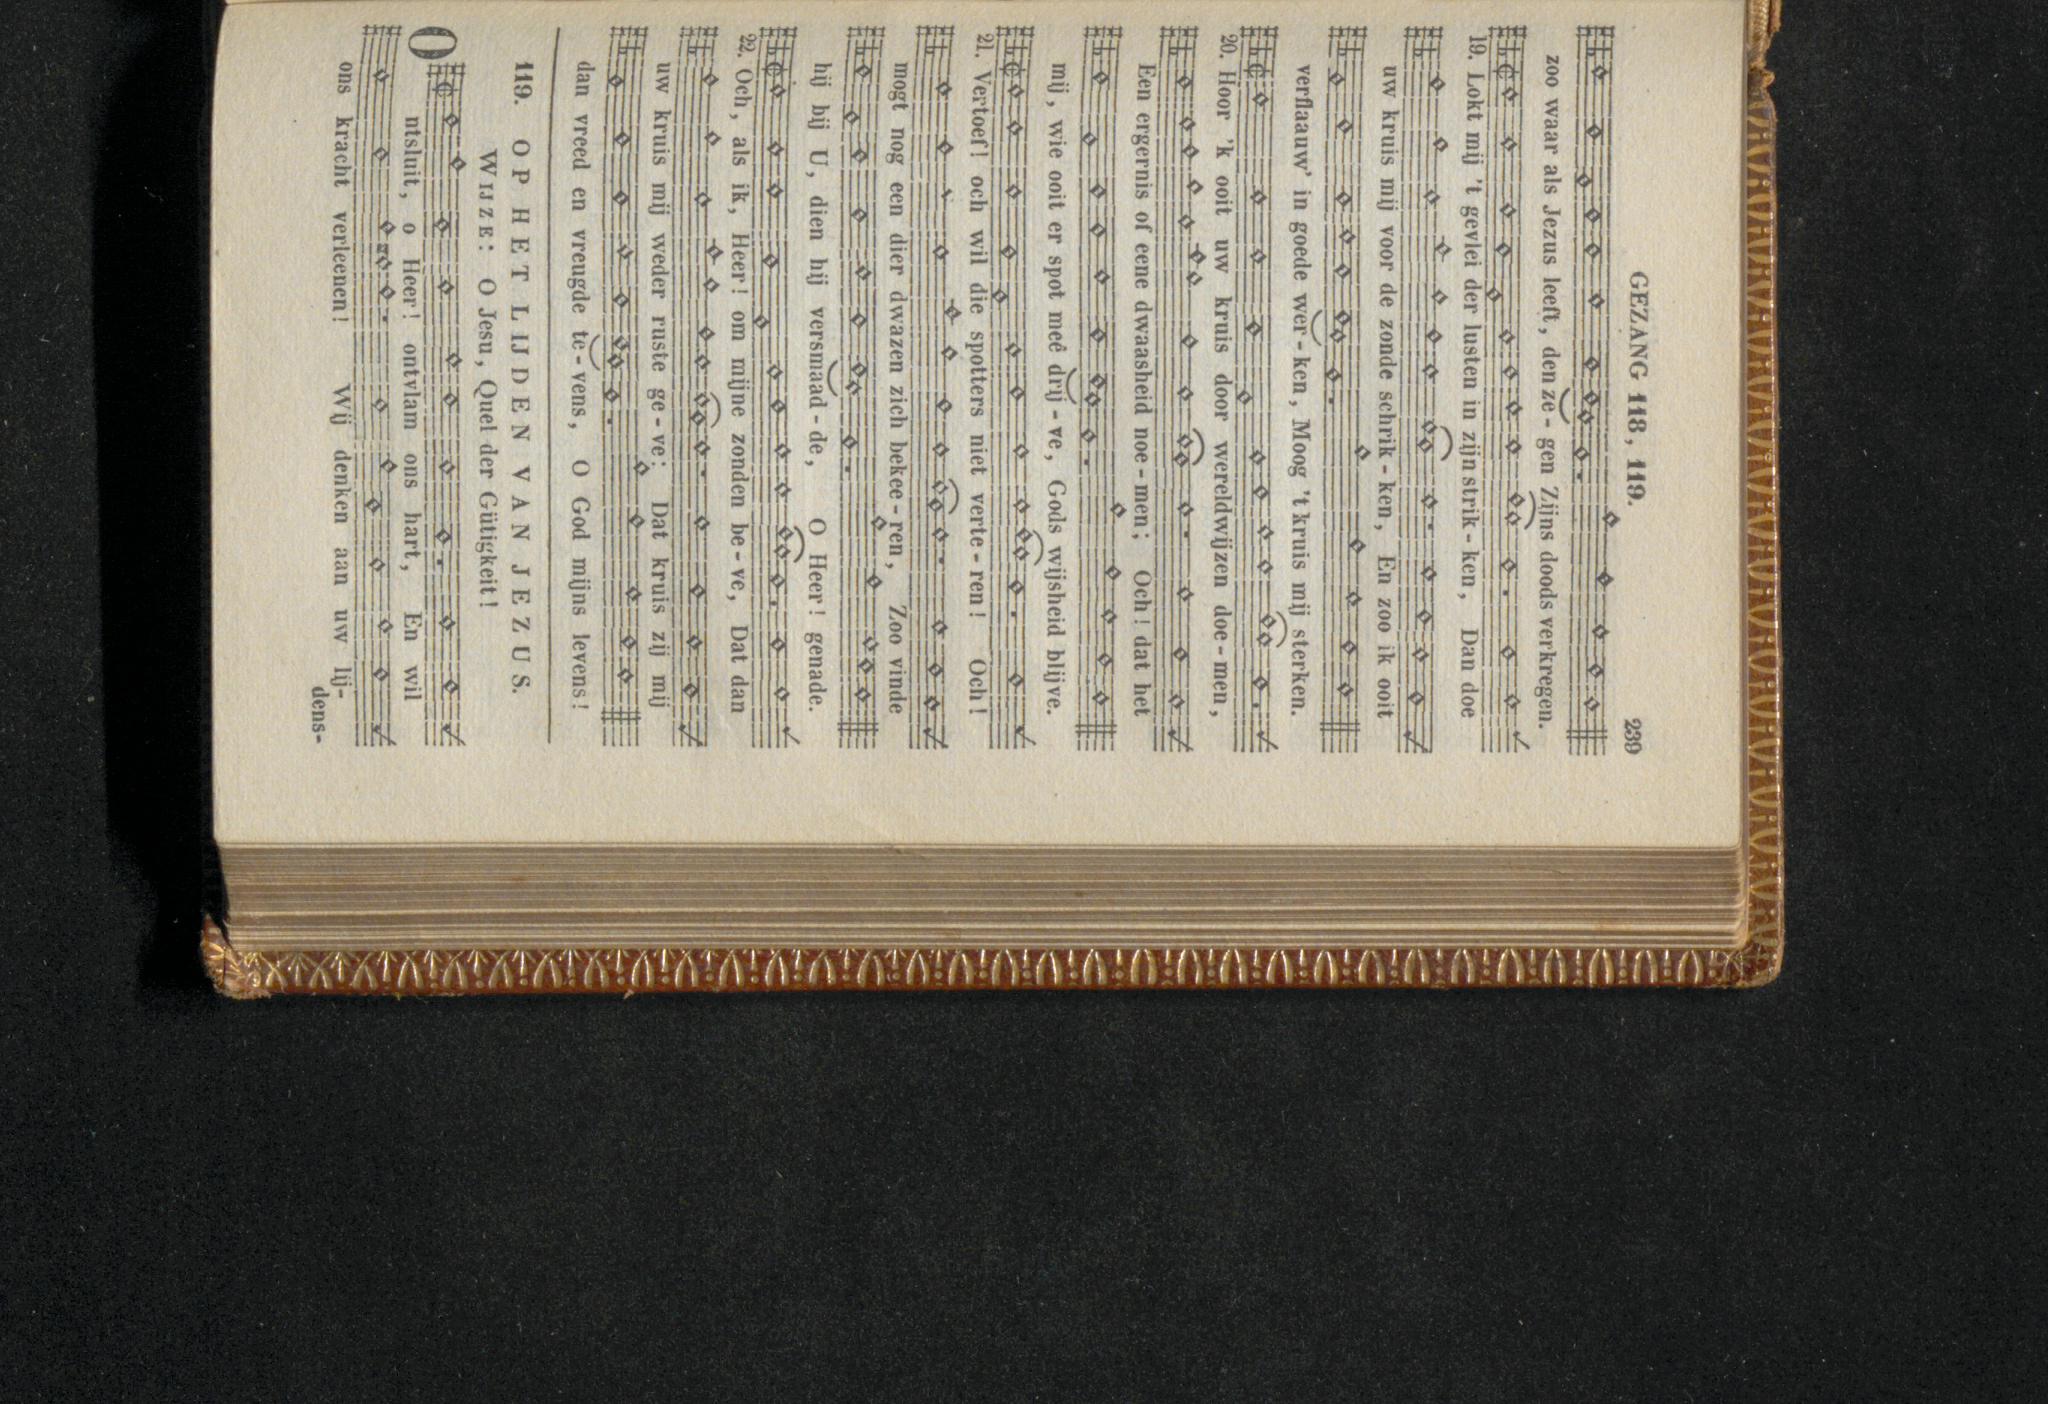 GEZANG 118, 119. 239
zoo waar als Jezus leeft, den ze - gen Zijns doods verkregen.
19. Lokt mij 't gevlei der lusten in zijn strik - ken, Dan doe
uw kruis mij voor de zonde schrik - ken, En zoo ik ooit
verflaauw' in goede wer - ken, Moog 't kruis mij sterken.
20. Hoor 'k ooit uw kruis door wereldwijzen doe - men,
Een ergernis of eene dwaasheid noe - men; Och! dat het
mij, wie ooit er spot meê drij - ve, Gods wijsheid blijve.
21. Vertoef! och wil die spotters niet verte - ren! Och!
mogt nog een dier dwazen zich bekee - ren, Zoo vinde
hij bij U, dien hij versmaad - de, O Heer! genade.
22. Och, als ik, Heer! om mijne zonden be - ve, Dat dan
uw kruis mij weder ruste ge - ve: Dat kruis zij mij
dan vreed en vreugde te - vens, O God mijns levens!
119. OP HET LIJDEN VAN JEZUS.
WIJZE: O Jesu, Quel der Gütigkeit!
Ontsluit, o Heer! ontvlam ons hart, En wil
ons kracht verleenen! Wij denken aan uw lij-
dens-